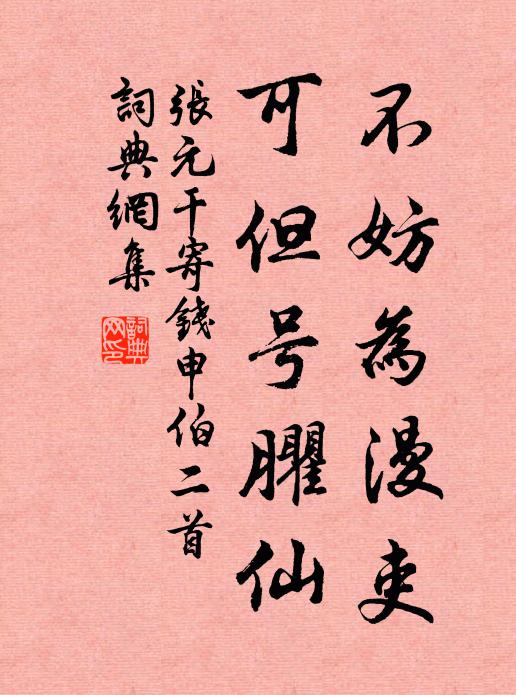 不妨為漫吏
可但号臞仙
張元干寄錢申伯二首
詞典網集
詞典网印